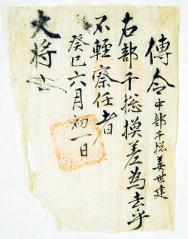 傳令中部千摠姜世建
右部千摠摸差爲去乎
不輕察任者
癸巳六月初一日
大將